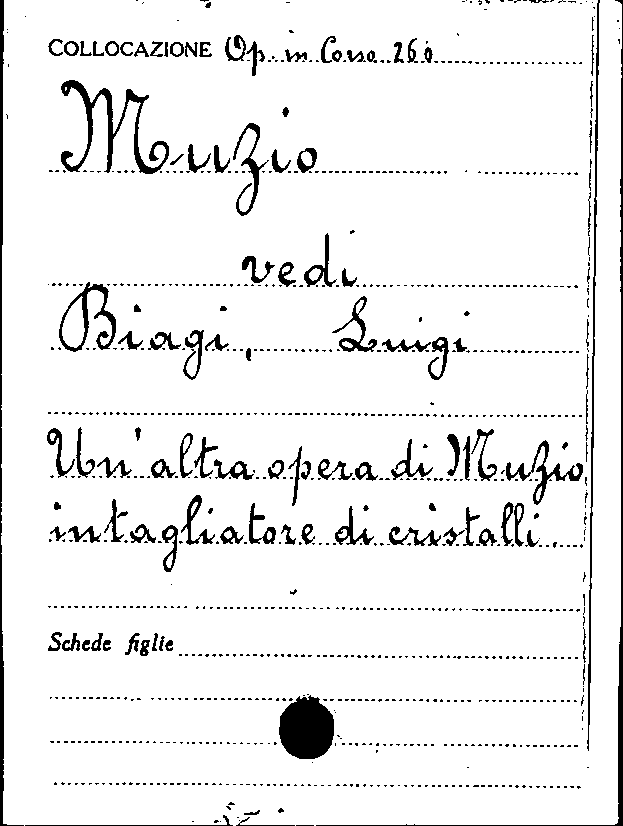 COLLOCAZIONE Op. in Corso 260
Muzio
vedi
Biagi, Luigi
Un'altra opera di Muzio
intagliatore di cristalli.
Schede figlie